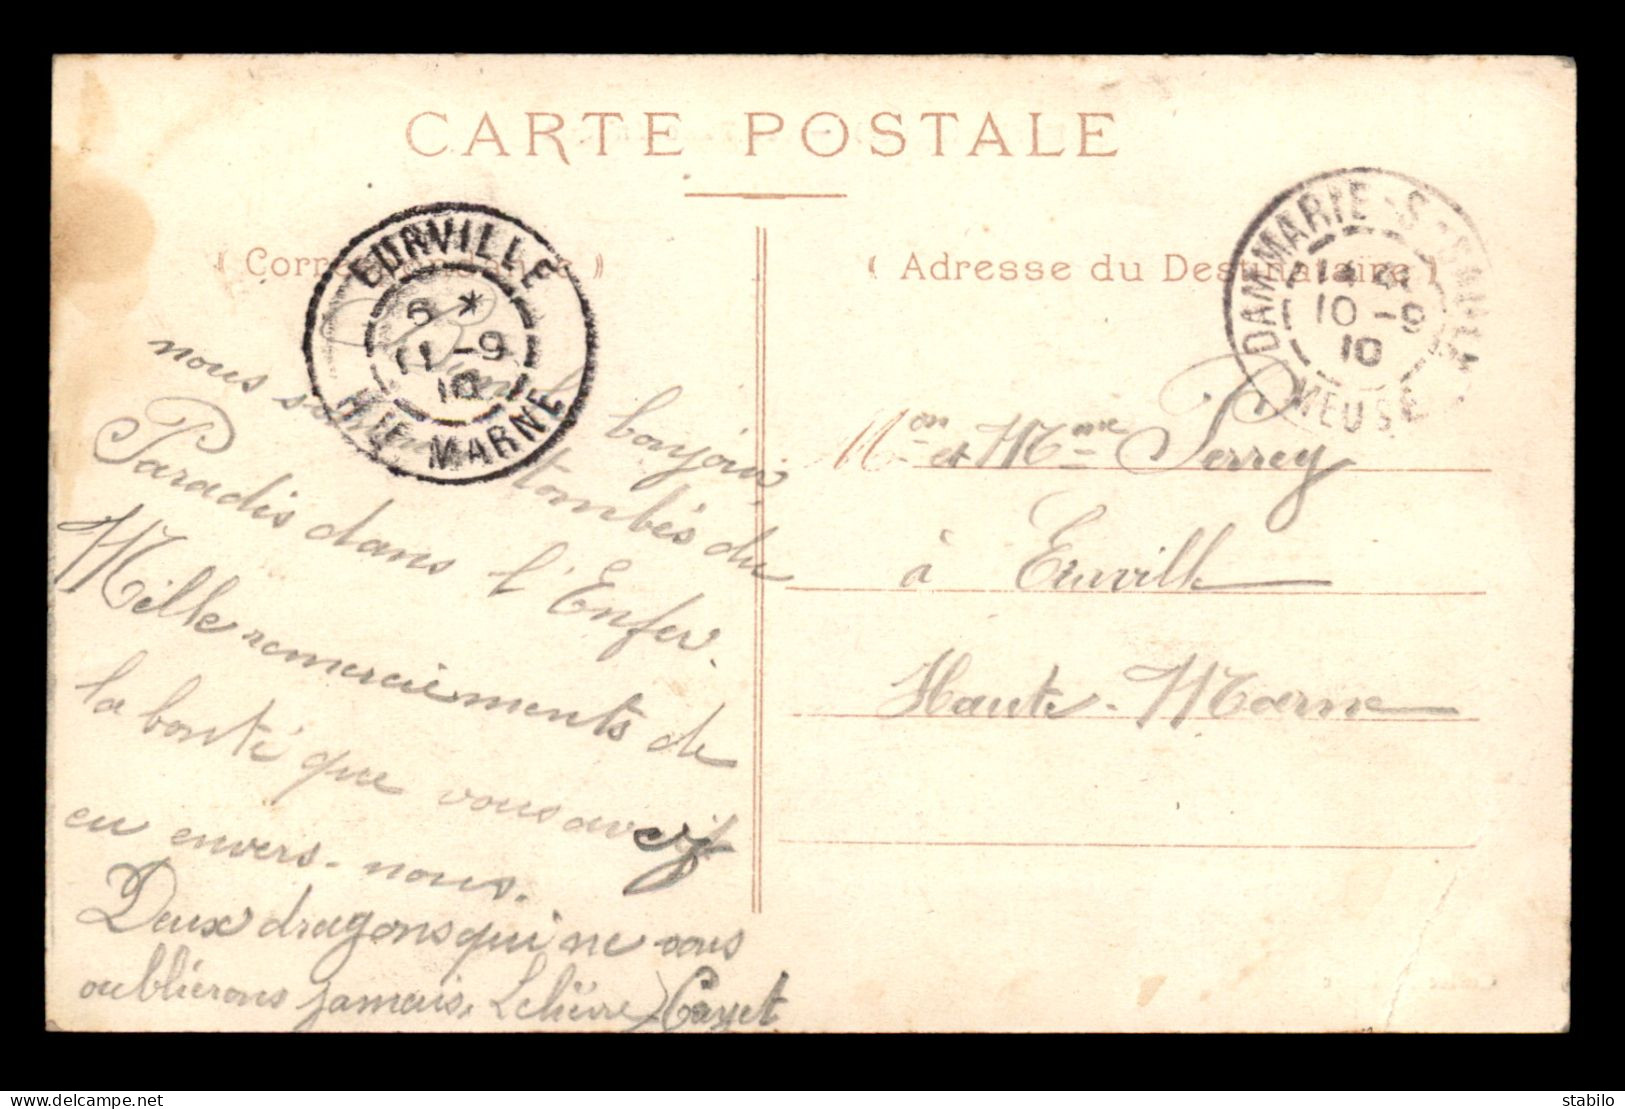 CARTE POSTALE
( Corre )
( Adresse du Destinataire )
EURVILLE
6 *
11 -9
10
HTE MARNE
DAMMARIE-S-SAULX
10 -9
10
MEUSE
Bien le bonjour,
nous sommes tombés du
Paradis dans l'Enfer.
Mille remerciements de
la bonté que vous avez
eu envers-nous.
Deux dragons qui ne vous
oublierons jamais. Lelièvre, Cayet
Mon et Mme Perrey
à Eurville
Haute-Marne
delcampe.net
stabilo